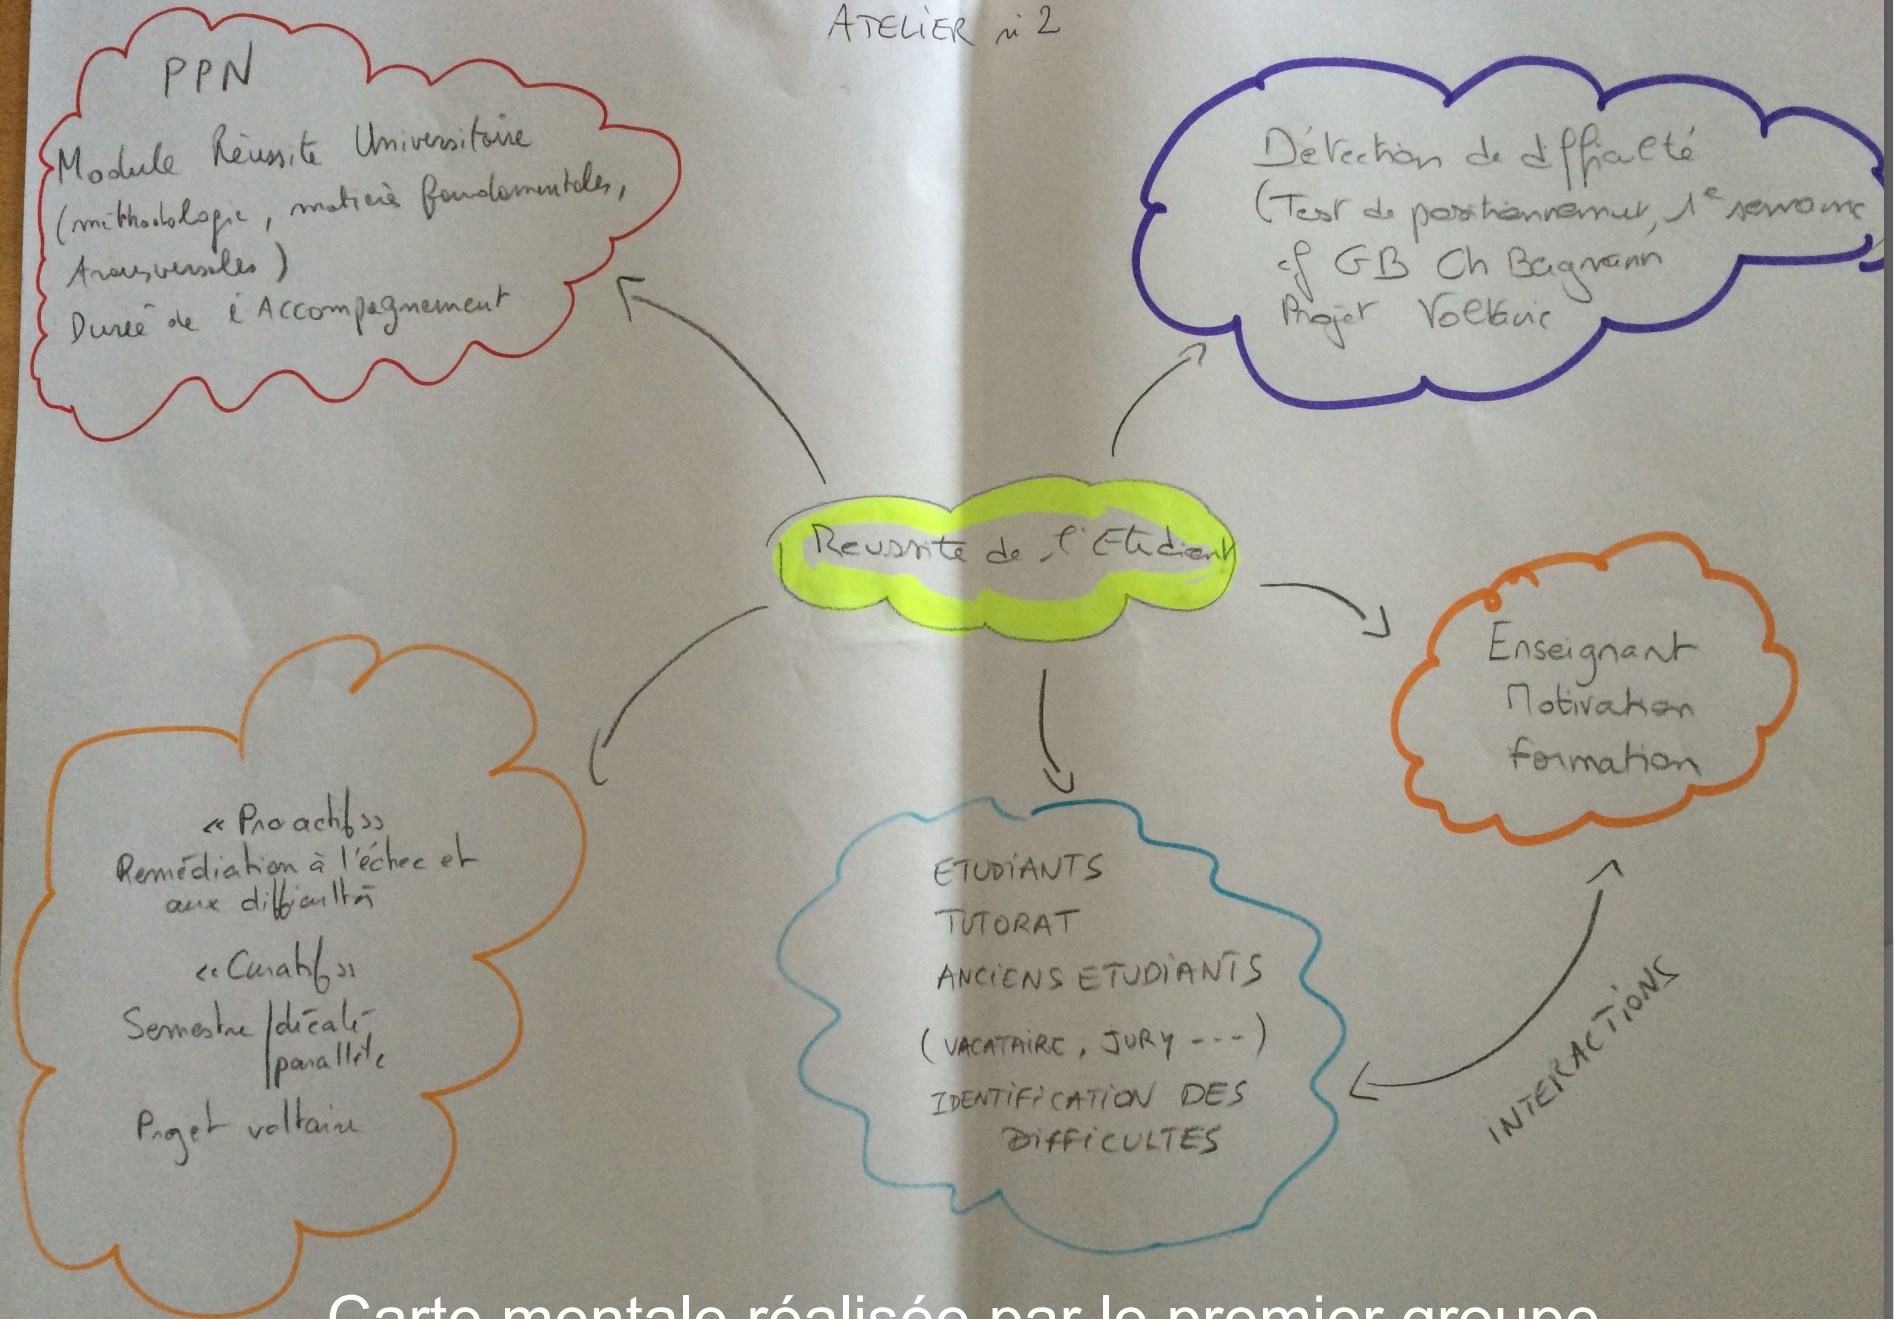 ATELIER n° 2
PPN
Module Réussite Universitaire
(méthodologie, matières fondamentales,
transversales)
Durée de l'Accompagnement
Détection de difficulté
(Test de positionnement, 1e semaine
cf GB Ch
Projet Voltaire
Reussite de l'Etudiant
Enseignant
Motivation
formation
« Proactif »
Remédiation à l'échec et
aux difficultés
« Curatif »
Semestre / décalé,
parallèle
Projet voltaire
ETUDIANTS
TUTORAT
ANCIENS ETUDIANTS
(VACATAIRE, JURY ---)
IDENTIFICATION DES
DIFFICULTES
INTERACTIONS
Carte mentale réalisée par le premier groupe